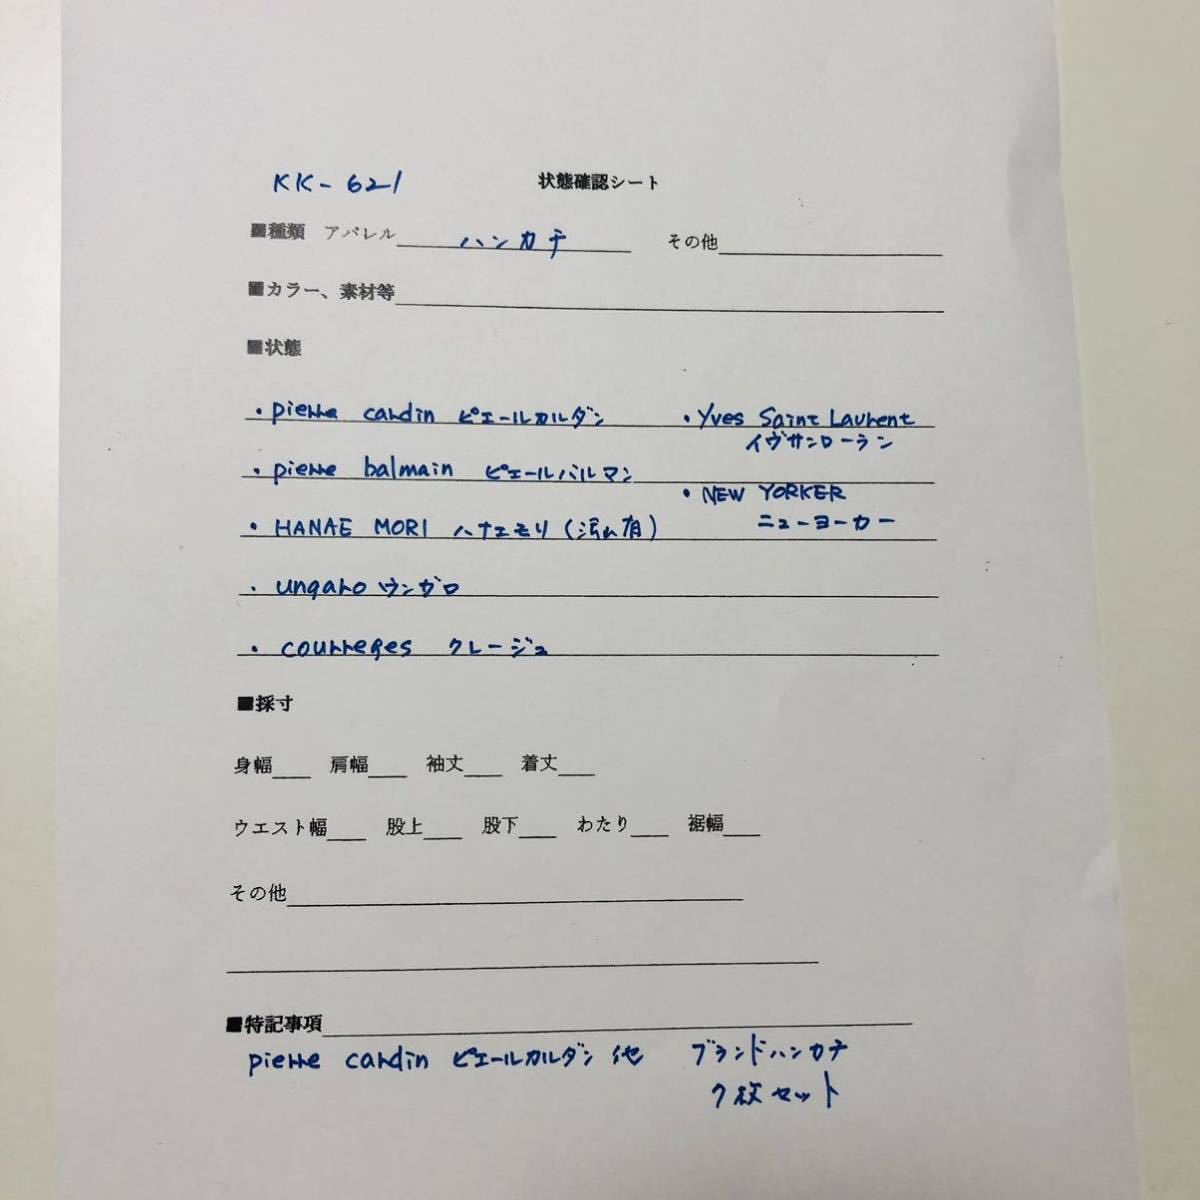 KK-621 状態確認シート
■種類 アパレル ハンカチ その他
■カラー、素材等
■状態
・pierre cardin ピエールカルダン
・pierre balmain ピエールバルマン
・HANAE MORI ハナエモリ(汚れ有)
・ungaro ウンガロ
・courreges クレージュ
・Yves Saint Laurent
イヴサンローラン
・NEW YORKER
ニューヨーカー
■採寸
身幅 肩幅 袖丈 着丈
ウエスト幅 股上 股下 わたり 裾幅
その他
■特記事項
pierre cardin ピエールカルダン 他 ブランドハンカチ
7枚セット